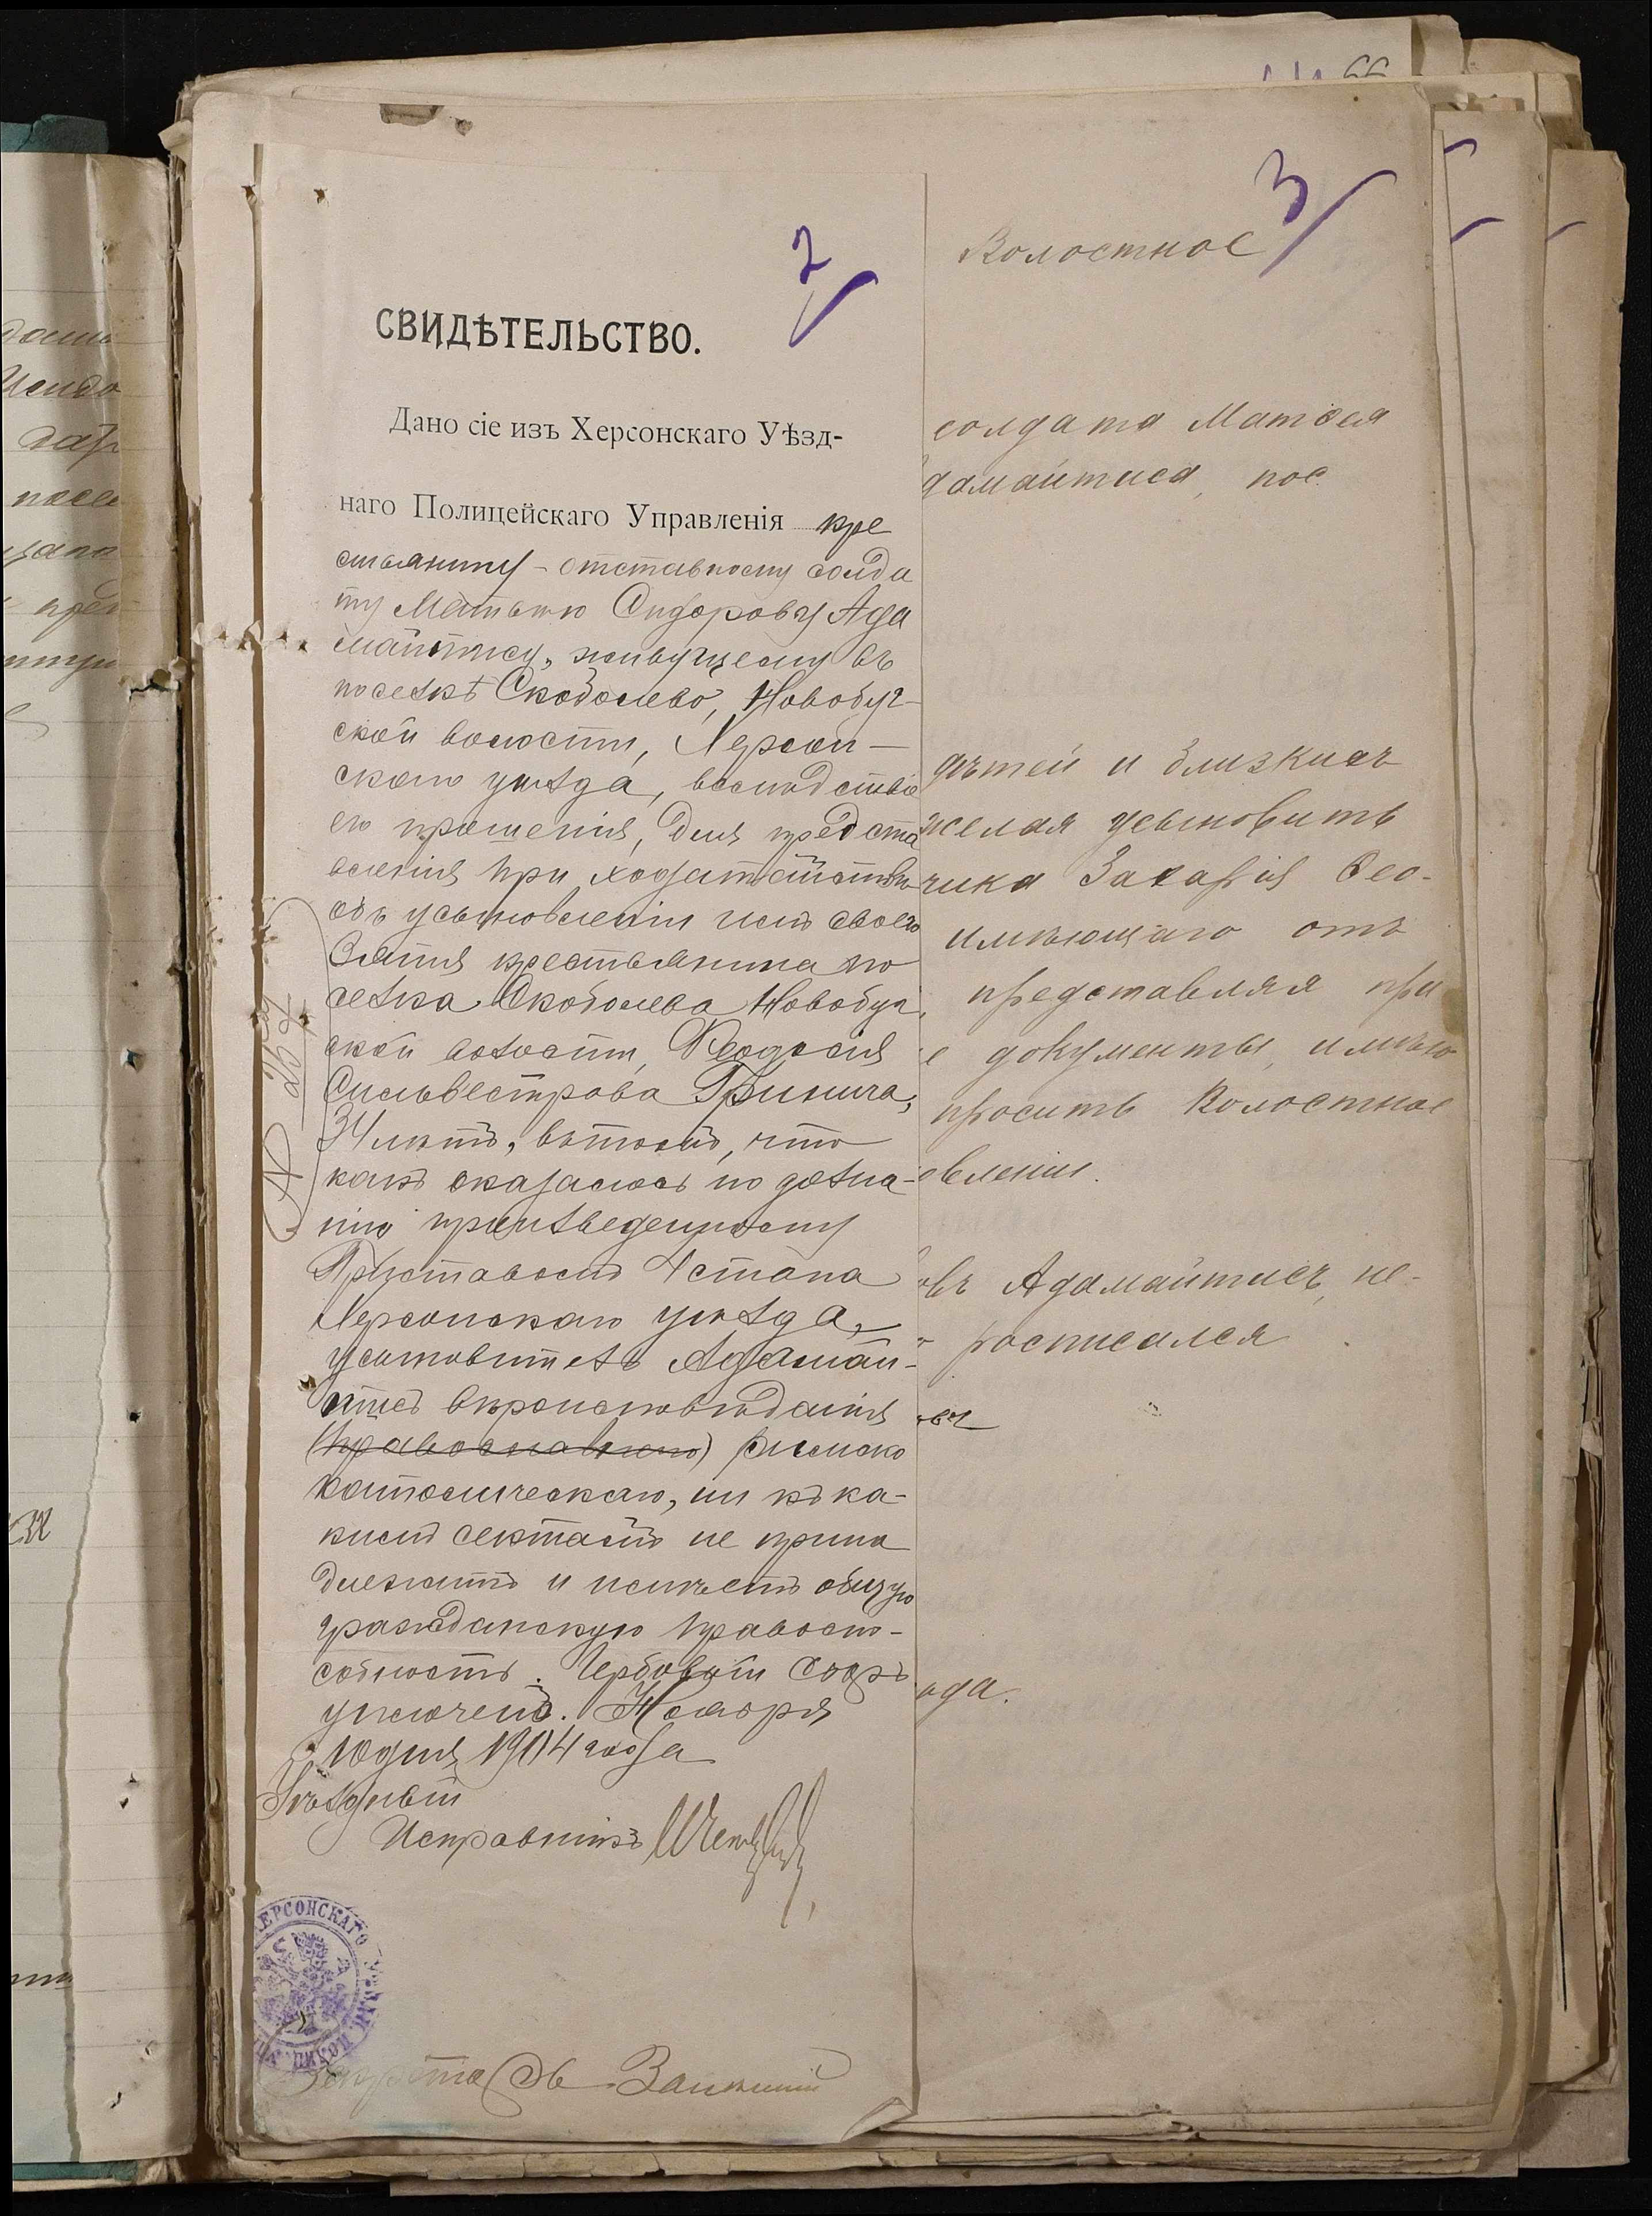 2
СВИДѢТЕЛЬСТВО.
Дано сіе изъ Херсонскаго Уѣзд-
наго Полицейскаго Управленія кре
стьянину - отставному солда
ту Матвѣю Сидорову Ада
майтису, живущему въ
поселкѣ Скобелево, Новобуг-
ской волости, Херсон-
скаго уѣзда, вслѣдствіе
его прошенія, для предста
вленія при ходатайствѣ
объ усыновленіи имъ своего
Зятя крестьянина по
селка Скобелева Новобуг
ской волости, Феодосія
Сильвестрова Гринича,
34 лѣтъ, вътомъ, что
какъ оказалось по дозна-
нію произведенному
Приставомъ 4 стана
Херсонскаго уѣзда,
усыновитель Адамай-
тисъ вѣроисповѣданія
(православнаго) римско
католическаго, ни къ ка-
кимъ сектамъ не прина
длежитъ и имѣетъ общую
гражданскую правоспо-
собность. Гербовый сборъ
уплоченъ. Ноября
дня 1904 года
Уѣздный
Исправникъ
ХЕРСОНСКАГО
Секретарь
3
Волостное
солдата Матвея
дамайтиса, пос.
дѣтей и близкихъ
желая усыновить
чика Захарія Ѳео-
имѣющаго отъ
представляя при
е документы, имѣю
просить Волостное
овленіи.
овъ Адамайтисъ, не-
росписался
ода.